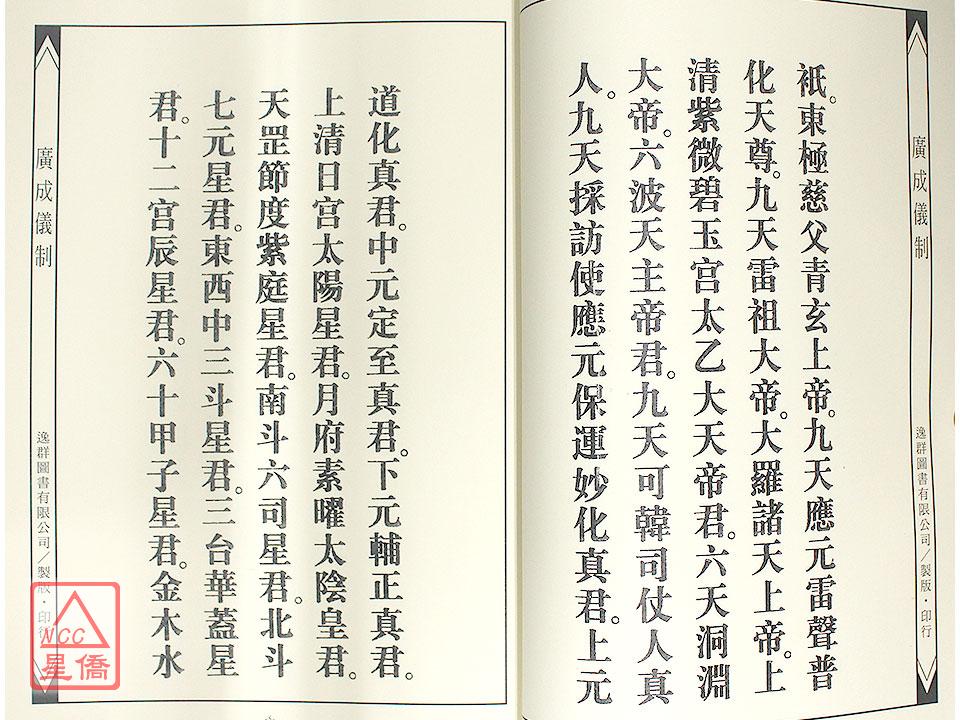 廣成儀制
逸群圖書有限公司／製版・印行
祇。東極慈父青玄上帝。九天應元雷聲普
化天尊。九天雷祖大帝。大羅諸天上帝。上
清紫微碧玉宮太乙大天帝君。六天洞淵
大帝。六波天主帝君。九天可韓司仗人真
人。九天採訪使應元保運妙化真君。上元
道化真君。中元定至真君。下元輔正真君。
上清日宮太陽星君。月府素曜太陰皇君。
天罡節度紫庭星君。南斗六司星君。北斗
七元星君。東西中三斗星君。三台華蓋星
君。十二宮辰星君。六十甲子星君。金木水
廣成儀制
逸群圖書有限公司／製版・印行
NCC
星僑